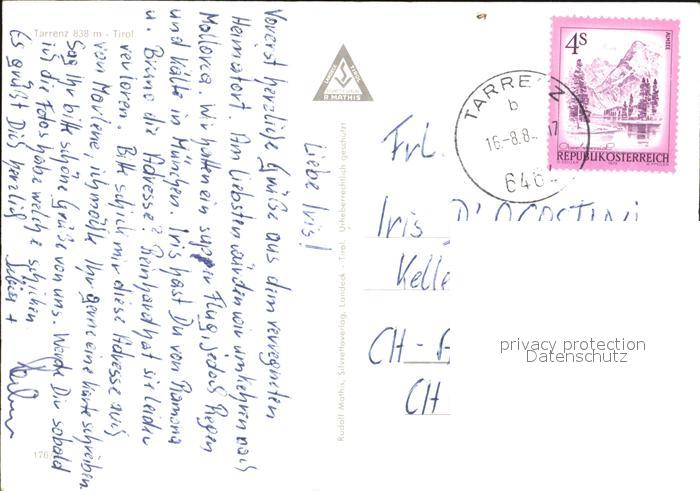 Tarrenz 838 m - Tirol
Liebe Iris!
Vorerst herzliche Grüße aus dem verregneten
Heimatort. Am liebsten würden wir umkehren nach
Mallorca. Wir hatten ein super Flug, jedoch Regen
und Kälte in München. Iris hast Du von Ramona
u. Bruno die Adresse? Reinhard hat sie leider
verloren. Bitte schick mir diese Adresse auch
von Marlene, ich möchte Ihr gerne eine Karte schreiben.
Sag Ihr bitte schöne Grüße von uns. Werde Dir sobald
ich die Fotos habe welche schicken
Es grüßt Dich herzlich
176
R MATHIS
Rudolf Mathis, Silvrettaverlag, Landeck - Tirol. Urheberrechtlich geschützt
TARRENZ
b
16.-8.8
17
646
4S
ALMSEE
REPUBLIK ÖSTERREICH
Frl.
Iris D'AGOSTINI
Kelle
CH -
CH
privacy protection
Datenschutz